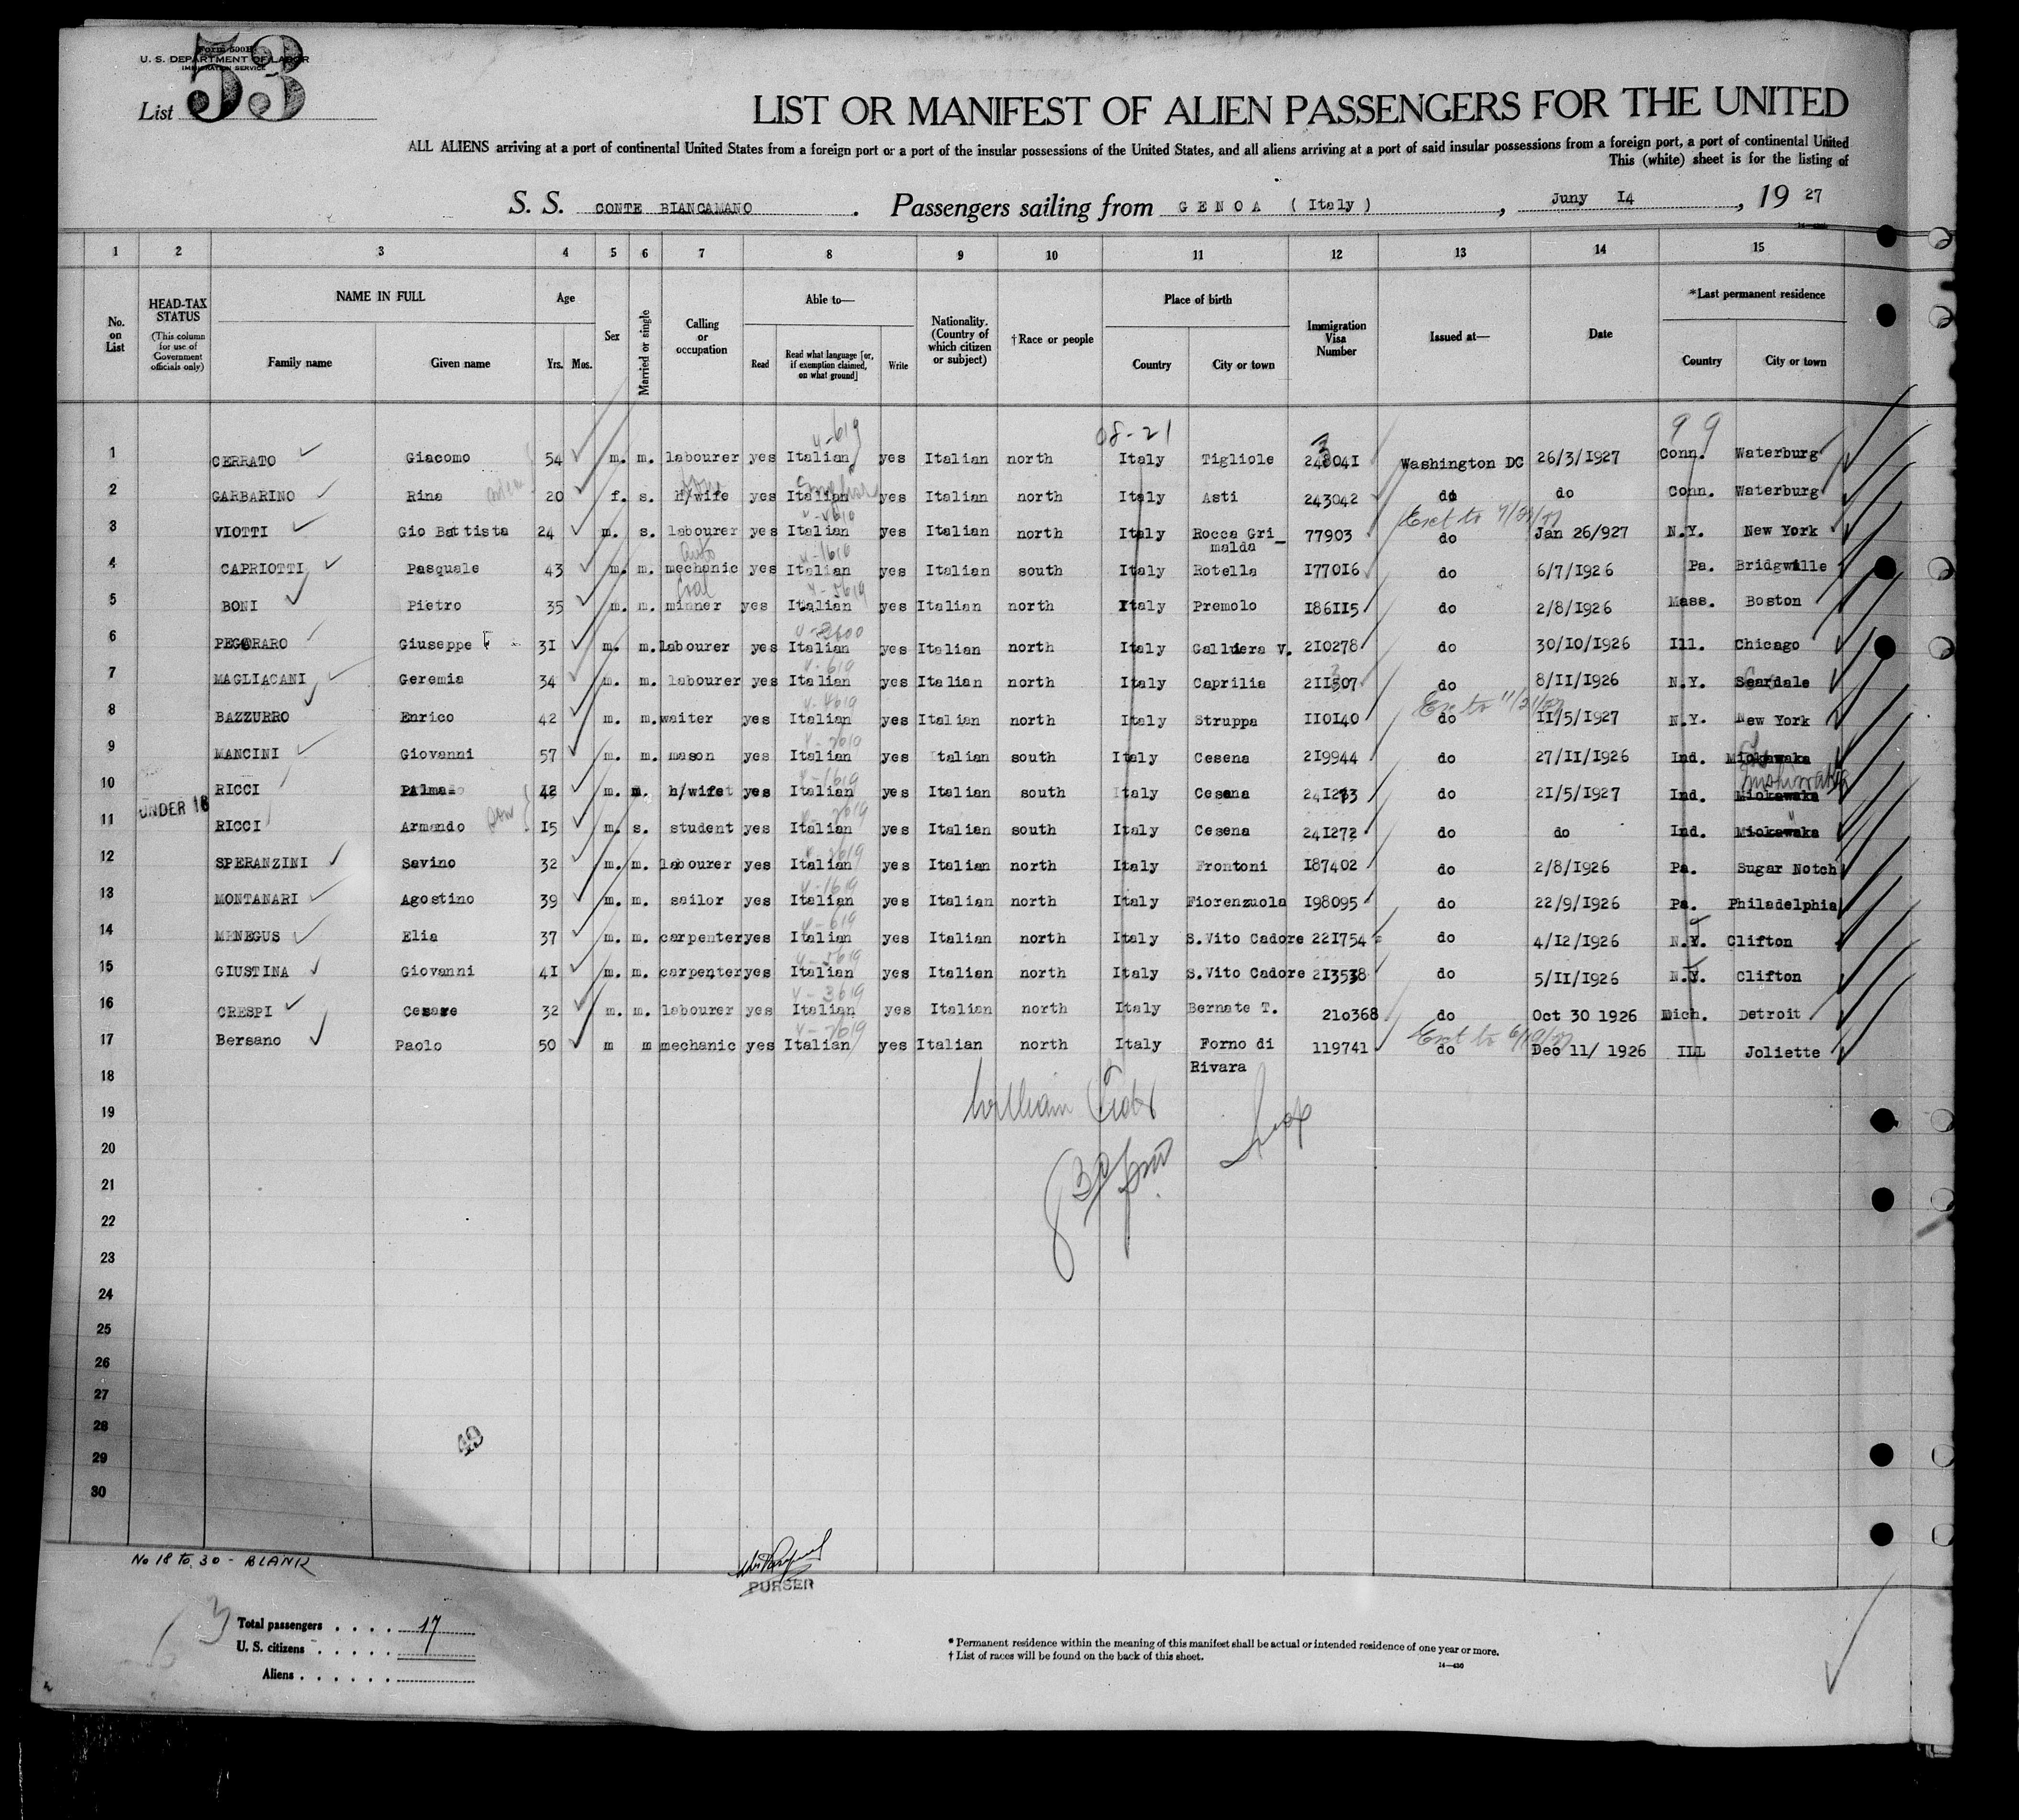 Form 500B
U. S. DEPARTMENT OF LABOR
IMMIGRATION SERVICE
List 53
LIST OR MANIFEST OF ALIEN PASSENGERS FOR THE UNITED
ALL ALIENS arriving at a port of continental United States from a foreign port or a port of the insular possessions of the United States, and all aliens arriving at a port of said insular possessions from a foreign port, a port of continental United
This (white) sheet is for the listing of
S. S. CONTE BIANCAMANO. Passengers sailing from GENOA (Italy), Juny 14, 19 27
1 2 3 4 5 6 7 8 9 10 11 12 13 14 15
No. on List
HEAD-TAX STATUS (This column for use of Government officials only)
NAME IN FULL Family name Given name
Age Yrs. Mos.
Sex
Married or single
Calling or occupation
Able to— Read Read what language [or, if exemption claimed, on what ground] Write
Nationality. (Country of which citizen or subject)
†Race or people
Place of birth Country City or town
Immigration Visa Number
Issued at—
Date
*Last permanent residence Country City or town
4-619 08-21 3 99
1 CERRATO Giacomo 54 m. m. labourer yes Italian yes Italian north Italy Tigliole 243041 Washington DC 26/3/1927 Conn. Waterburg
2 GARBARINO Rina 20 f. s. h/wife yes Italian yes Italian north Italy Asti 243042 do do Conn. Waterburg
3 VIOTTI Gio Battista 24 m. s. labourer yes Italian yes Italian north Italy Rocca Gri_malda 77903 do Jan 26/927 N.Y. New York
Auto
4 CAPRIOTTI Pasquale 43 m. m. mechanic yes Italian yes Italian south Italy Rotella 177016 do 6/7/1926 Pa. Bridgwille
Coal
5 BONI Pietro 35 m. m. minner yes Italian yes Italian north Italy Premolo 186115 do 2/8/1926 Mass. Boston
6 PEGORARO Giuseppe 31 m. m. labourer yes Italian yes Italian north Italy Galliera V. 210278 do 30/10/1926 Ill. Chicago
7 MAGLIACANI Geremia 34 m. m. labourer yes Italian yes Italian north Italy Caprilia 211507 do 8/11/1926 N.Y. Scardale
8 BAZZURRO Enrico 42 m. m. waiter yes Italian yes Italian north Italy Struppa 110140 do 11/5/1927 N.Y. New York
9 MANCINI Giovanni 57 m. m. mason yes Italian yes Italian south Italy Cesena 219944 do 27/11/1926 Ind. Miokawaka
10 RICCI Palma 42 m. m. h/wife yes Italian yes Italian south Italy Cesena 241273 do 21/5/1927 Ind. Miokawaka
UNDER 16
11 RICCI Armando son 15 m. s. student yes Italian yes Italian south Italy Cesena 241272 do do Ind. Miokawaka
12 SPERANZINI Savino 32 m. m. labourer yes Italian yes Italian north Italy Frontoni 187402 do 2/8/1926 Pa. Sugar Notch
13 MONTANARI Agostino 39 m. m. sailor yes Italian yes Italian north Italy Fiorenzuola 198095 do 22/9/1926 Pa. Philadelphia
14 MENEGUS Elia 37 m. m. carpenter yes Italian yes Italian north Italy S.Vito Cadore 221754 do 4/12/1926 N.Y. Clifton
15 GIUSTINA Giovanni 41 m. m. carpenter yes Italian yes Italian north Italy S.Vito Cadore 213538 do 5/11/1926 N.Y. Clifton
16 CRESPI Cesare 32 m. m. labourer yes Italian yes Italian north Italy Bernate T. 210368 do Oct 30 1926 Mich. Detroit
17 Bersano Paolo 50 m m mechanic yes Italian yes Italian north Italy Forno di Rivara 119741 do Dec 11/ 1926 ILL Joliette
18
19
20
21
22
23
24
25
26
27
28
29
30
No 18 to 30 - BLANK
PURSER
Total passengers . . . . 17
U. S. citizens . . . . .
Aliens . . . . . .
* Permanent residence within the meaning of this manifest shall be actual or intended residence of one year or more.
† List of races will be found on the back of this sheet.
14—430